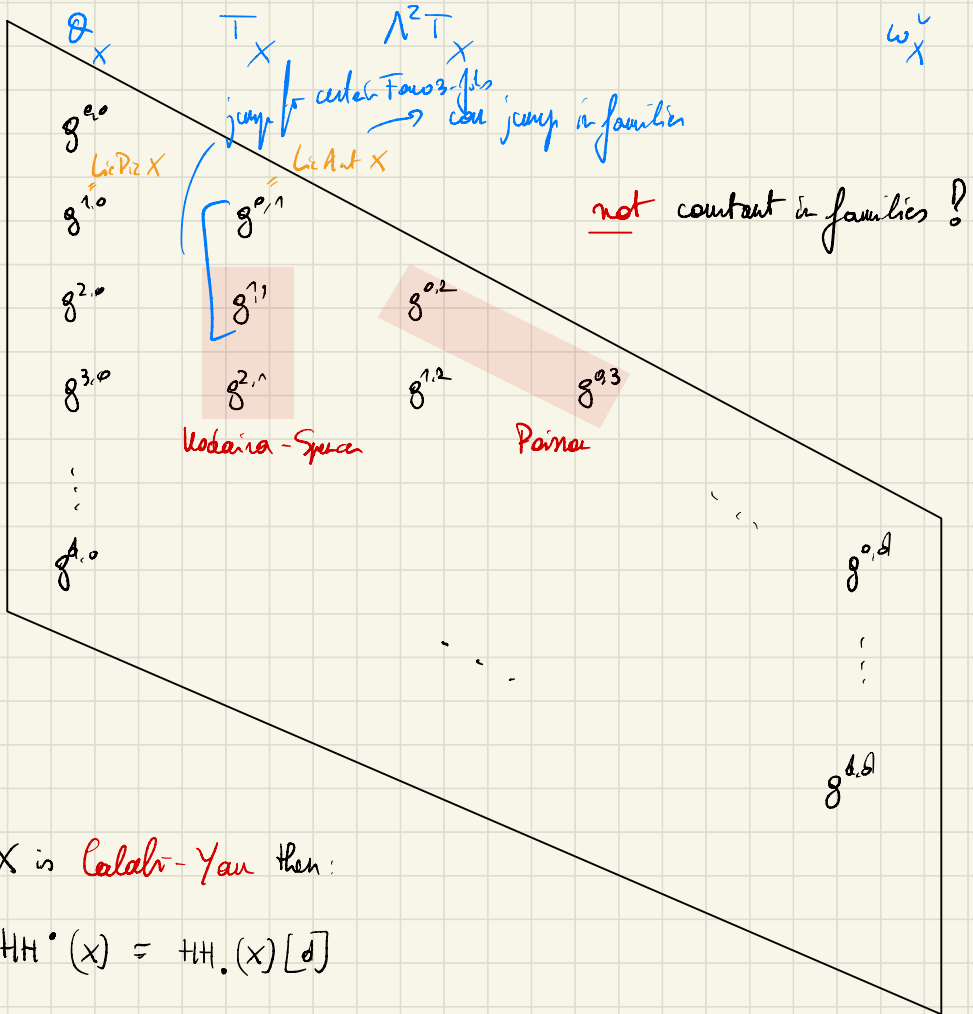 𝒪_X T_X Λ²T_X ω_X^∨
jump for certain Fano 3-folds
can jump in families
g^{0,0}
Lie Pic X Lie Aut X
g^{1,0} = g^{0,1} =
not constant in families !
g^{2,0} g^{1,1} g^{0,2}
g^{3,0} g^{2,1} g^{1,2} g^{0,3}
Kodaira-Spencer Poisson
g^{d,0} g^{0,d}
g^{d,d}
X is Calabi-Yau then:
HH^•(X) = HH_•(X)[d]